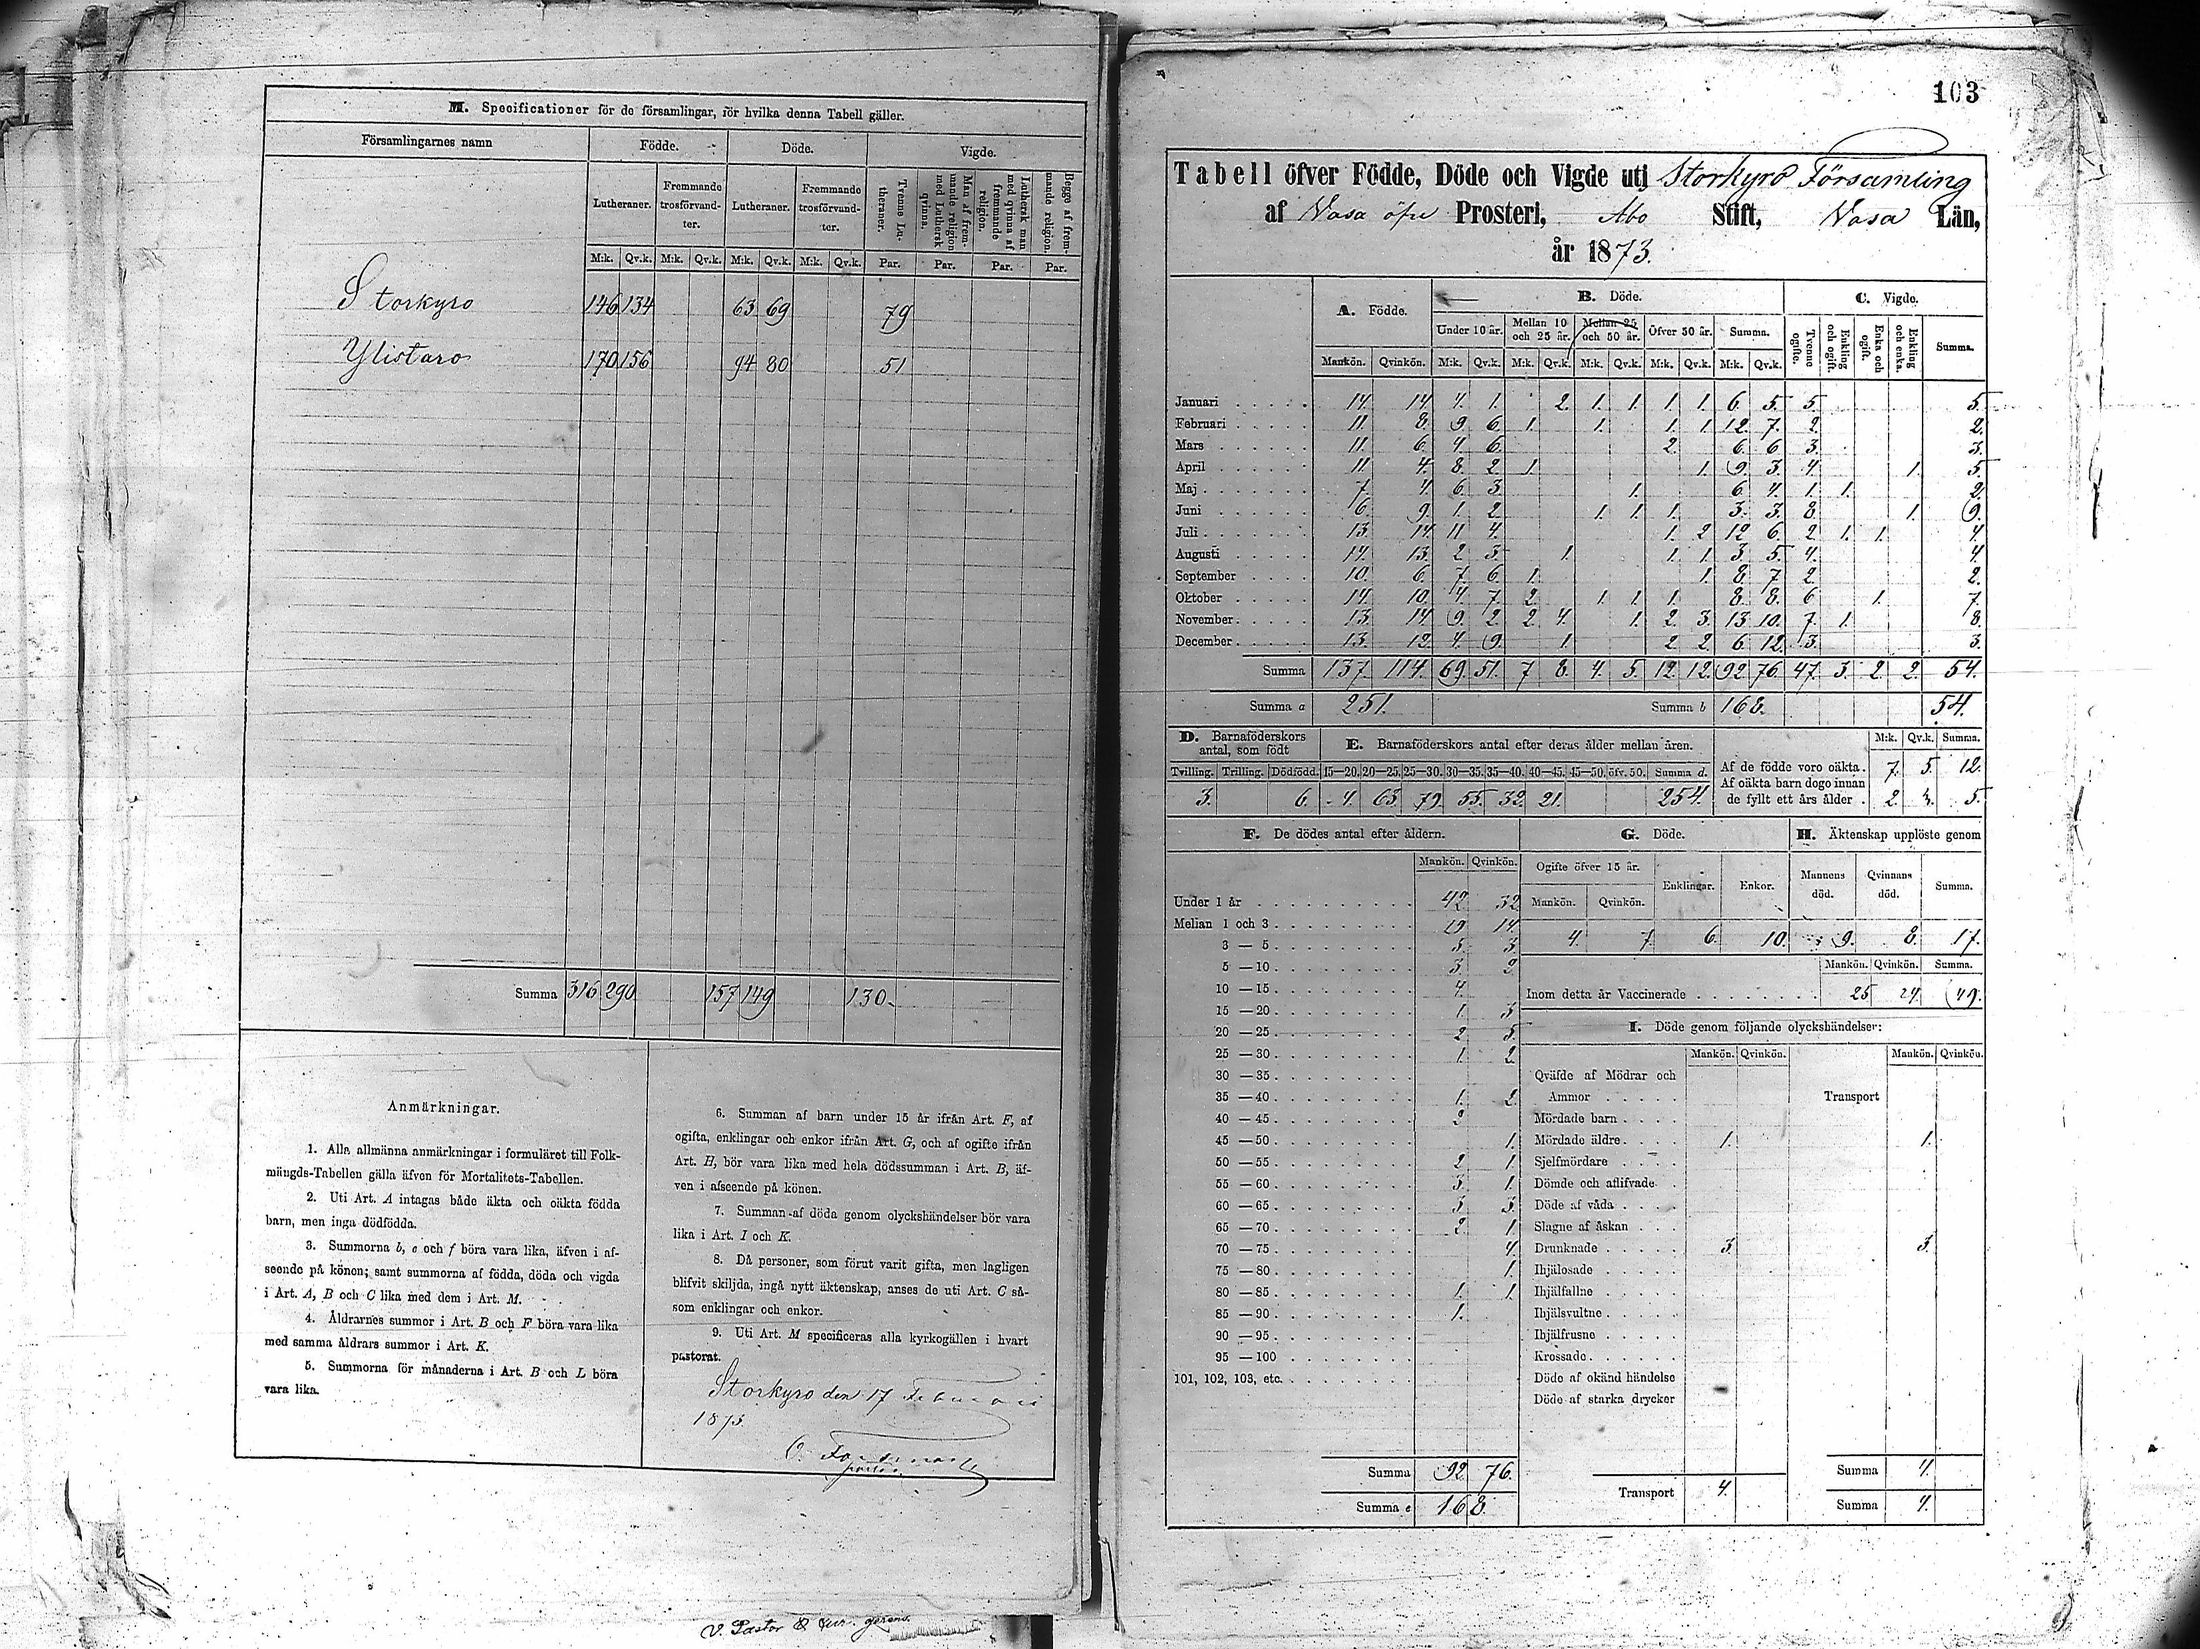 M. Specificationer för de församlingar, för hvilka denna Tabell gäller.
Församlingarnes namn Födde. Döde. Vigde.
Lutheraner. Fremmande trosförvandter. Lutheraner. Fremmande trosförvandter. Tvenne Lutheraner. Man af fremmande religion med Luthersk qvinna. Luthersk man med qvinna af fremmande religion. Begge af fremmande religion.
M:k. Qv.k. M:k. Qv.k. M:k. Qv.k. M:k. Qv.k. Par. Par. Par. Par.
Storkyro 146 134 63 69 79
Ylistaro 170 156 94 80 51
Summa 316 290 157 149 130.
Anmärkningar.
1. Alla allmänna anmärkningar i formuläret till Folk-
mängds-Tabellen gälla äfven för Mortalitets-Tabellen.
2. Uti Art. A intagas både äkta och oäkta födda
barn, men inga dödfödda.
3. Summorna b, e och f böra vara lika, äfven i af-
seende på könen; samt summorna af födda, döda och vigda
i Art. A, B och C lika med dem i Art. M.
4. Åldrarnes summor i Art. B och F böra vara lika
med samma åldrars summor i Art. K.
5. Summorna för månaderna i Art. B och L böra
vara lika.
6. Summan af barn under 15 år ifrån Art. F, af
ogifta, enklingar och enkor ifrån Art. G, och af ogifte ifrån
Art. H, bör vara lika med hela dödssumman i Art. B, äf-
ven i afseende på könen.
7. Summan af döda genom olyckshändelser bör vara
lika i Art. I och K.
8. Då personer, som förut varit gifta, men lagligen
blifvit skiljda, ingå nytt äktenskap, anses de uti Art. C så-
som enklingar och enkor.
9. Uti Art. M specificeras alla kyrkogällen i hvart
pastorat.
Storkyro den 17 Februari
V. Pastor & Cur. gerens.
103
Tabell öfver Födde, Döde och Vigde uti Storkyro Församling
af Vasa öfre Prosteri, Åbo Stift, Vasa Län,
år 1873.
A. Födde. B. Döde. C. Vigde.
Under 10 år. Mellan 10 och 25 år. Mellan 25 och 50 år. Öfver 50 år. Summa. Tvenne ogifte. Enkling och ogift. Enka och ogift. Enkling och enka. Summa.
Mankön. Qvinkön. M:k. Qv.k. M:k. Qv.k. M:k. Qv.k. M:k. Qv.k. M:k. Qv.k.
Januari 14. 14. 4. 1. 2. 1. 1. 1. 1. 6. 5. 5. 5.
Februari 11. 8. 9. 6. 1. 1. 1. 1. 12. 7. 2. 2.
Mars 11. 6. 4. 6. 2. 6. 6. 3. 3.
April 11 4. 8. 2. 1 1. 9. 3. 4. 1. 5.
Maj 7. 4. 6. 3. 1. 6. 4. 1. 1. 2.
Juni 6. 9. 1. 2. 1. 1. 1. 3. 3. 8. 1. 9.
Juli 13. 14. 11. 4. 1. 2. 12. 6. 2. 1. 1. 4.
Augusti 14. 13. 2. 3. 1. 1. 1. 3. 5. 4. 4.
September 10. 6. 7. 6. 1. 1. 8. 7. 2. 2.
Oktober 14. 10. 4. 7. 2. 1. 1. 1. 8. 8. 6. 1. 7.
November 13. 14. 9. 2. 2. 4. 1. 2. 3. 13. 10. 7. 1. 8.
December 13. 12. 4. 9. 1. 2. 2. 6. 12. 3. 3.
Summa 137. 114. 69. 51. 7. 8. 4. 5. 12. 12. 92. 76. 47. 3. 2. 2. 54.
Summa a 251. Summa b 168. 54.
D. Barnaföderskors antal, som födt
E. Barnaföderskors antal efter deras ålder mellan åren.
M:k. Qv.k. Summa.
Tvilling. Trilling. Dödfödd. 15—20. 20—25. 25—30. 30—35. 35—40. 40—45. 45—50. öfv. 50. Summa d.
3. 6. 4. 63. 79. 55. 32. 21. 254.
Af de födde voro oäkta. 7. 5. 12.
Af oäkta barn dogo innan
de fyllt ett års ålder. 2. 3. 5.
F. De dödes antal efter åldern.
Mankön. Qvinkön.
Under 1 år 42. 32.
Mellan 1 och 3 19 14
3 — 5 5. 3.
5 — 10 3. 2
10 — 15 4.
15 — 20 1. 3.
20 — 25 2. 5.
25 — 30 1. 2.
30 — 35
35 — 40 1. 2.
40 — 45 2.
45 — 50 1.
50 — 55 2. 1.
55 — 60 3. 1.
60 — 65 3. 3.
65 — 70 2. 1.
70 — 75 4.
75 — 80 1.
80 — 85 1. 1.
85 — 90 1.
90 — 95
95 — 100
101, 102, 103, etc.
Summa 92 76.
Summa e 168.
G. Döde.
Ogifte öfver 15 år. Enklingar. Enkor.
Mankön. Qvinkön.
4. 7. 6. 10.
H. Äktenskap upplöste genom
Mannens död. Qvinnans död. Summa.
9. 8. 17.
Mankön. Qvinkön. Summa.
Inom detta år Vaccinerade 25 24. 49.
I. Döde genom följande olyckshändelser:
Mankön. Qvinkön. Mankön. Qvinkön.
Qväfde af Mödrar och
Ammor Transport
Mördade barn
Mördade äldre 1. 1.
Sjelfmördare
Dömde och aflifvade
Döde af våda
Slagne af åskan
Drunknade 3. 3.
Ihjälosade
Ihjälfallne
Ihjälsvultne
Ihjälfrusne
Krossade
Döde af okänd händelse
Döde af starka drycker
Transport 4. Summa 4.
Summa 4.